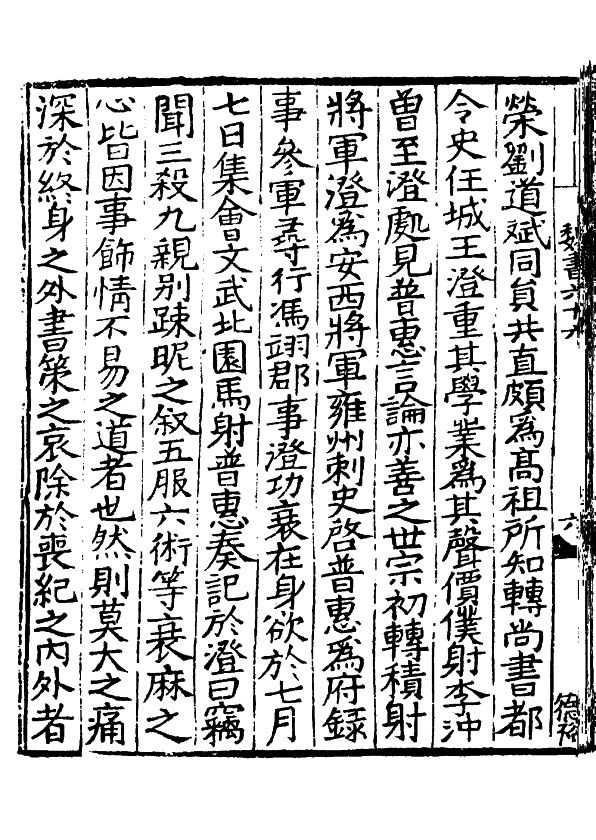 榮劉道斌同員共直頗爲髙祖所知轉尚書都
令史任城王澄重其學業爲其聲價僕射李沖
曽至澄處見普惠言論亦善之世宗初轉積射
將軍澄爲安西將軍雍州刺史啓普惠爲府録
事參軍尋行馮翊郡事澄功衰在身欲於七月
七日集會文武北園馬射普惠奏記於澄曰竊
聞三殺九親别疎昵之叙五服六術等衰麻之
心皆因事飾情不易之道者也然則莫大之痛
深於終身之外書策之哀除於喪紀之内外者
魏書六十六
六